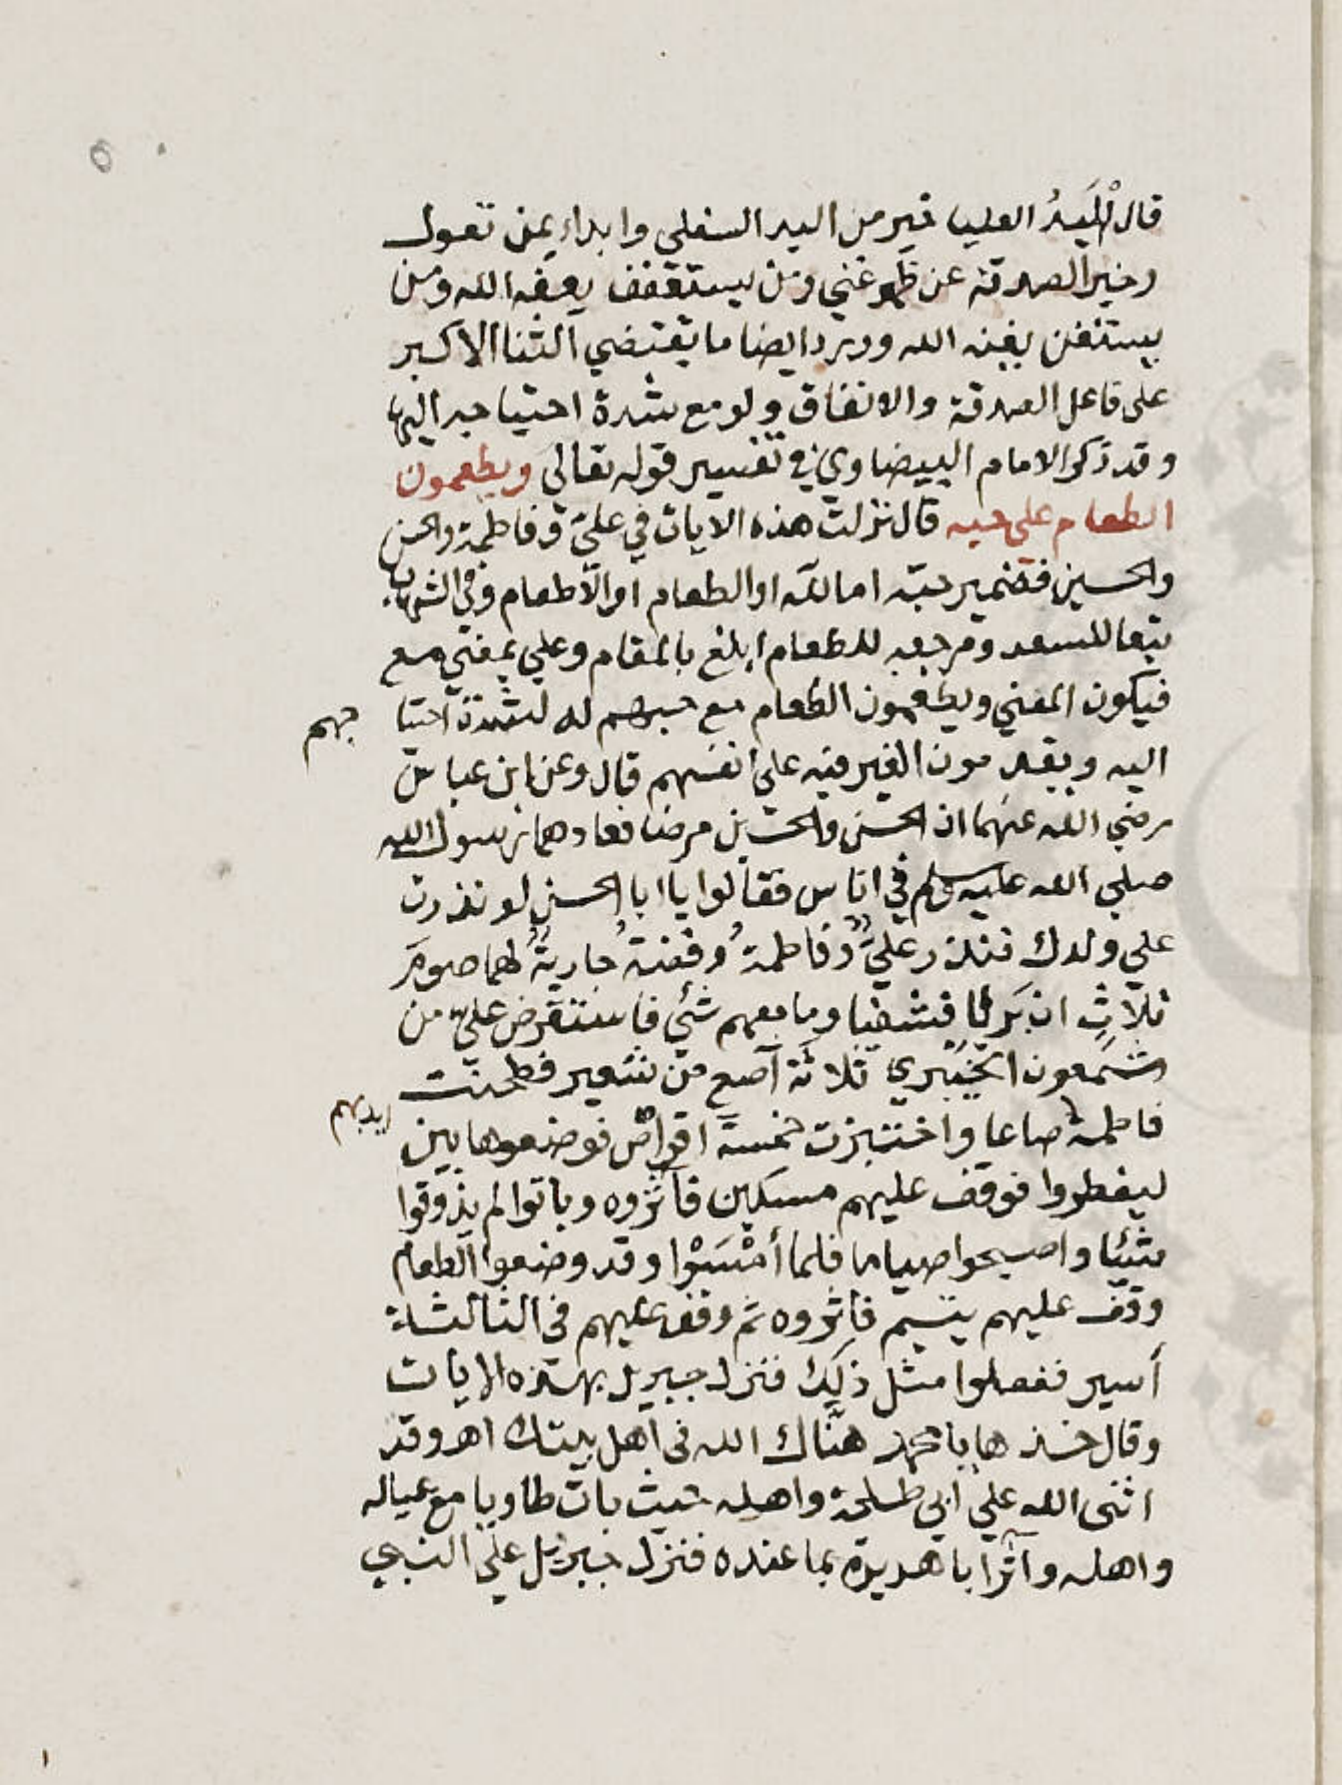 قال اَلْيَدُ العليا خير من اليد السفلي وابداء بمن تعول
وخير الصدقة عن ظهر غني ومن يستعفف يعفه الله ومن
يستغن يغنه الله وورد ايضا ما يقتضي الثنا الاكبر
على فاعل الصدقة والانفاق ولو مع شدة احتياجه اليها
وقد ذكر الامام البيضاوي في تفسير قوله تعالى ويطعمون
الطعام على حبه قال نزلت هذه الايات في عليّ وفاطمة والحسن
والحسين فضمير حبّه اما لله او الطعام او الاطعام وفي الشهاب
تبعا للسعد ومرجعه للطعام ابلغ بالمقام وعلي بمعني مع
فيكون المعني ويطعمون الطعام مع حبهم له لشدة احتيا جهم
اليه ويقدمون الغير فيه علي انفسهم قال وعن ابن عباس
رضي الله عنهما ان الحسن والحسين مرضا فعادهما رسول الله
صلي الله عليه وسلم في اناس فقالوا يا ابا الحسن لو نذرت
علي ولدك فنذر عليٌّ وفاطمةُ وفضةُ جاريةٌ لهما صومَ
ثلاثٍ ان بَرِئا فشفيا وما معهم شئي فاستقرض عليّ من
شَمعون الخَيْبري ثلاثة آصع من شعير فطحنت
فاطمة صاعا واختبزت خمسةَ اقراص فوضعوها بين ايديهم
ليفطروا فوقف عليهم مسكين فآثروه وباتوا لم يذوقوا
شيئا واصبحوا صياما فلما أمْسَوْا وقد وضعوا الطعام
وقف عليهم يتيم فاثروه ثم وقف عليهم في الثالثة
أسير ففعلوا مثل ذلك فنزل جبريل بهذه الايات
وقال خذ ها يا محمد هنّاك الله في اهل بيتك اهـ وقد
اثنى الله علي ابي طلحة واهله حيث بات طاويا مع عياله
واهله وآثر ابا هريرة بما عنده فنزل جبريل علي النبي